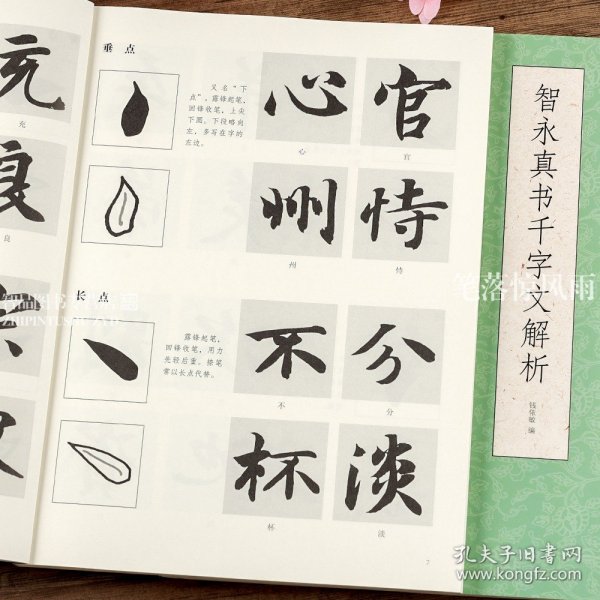 充
良
垂点
又名“下
点”，露锋起笔，
回锋收笔，上尖
下圆，下径略向
左，多写在字的
左边。
心
官
心
官
州
恃
州
恃
长点
露锋起笔，
回锋收笔，用力
先轻后重。捺笔
常以长点代替。
不
分
不
分
杯
淡
杯
淡
7
智永真书千字文解析
钱依敏 编
笔落惊风雨
智品图书专营店
ZHIPINTUSHU ZYD
孔夫子旧书网
www.kongfz.com